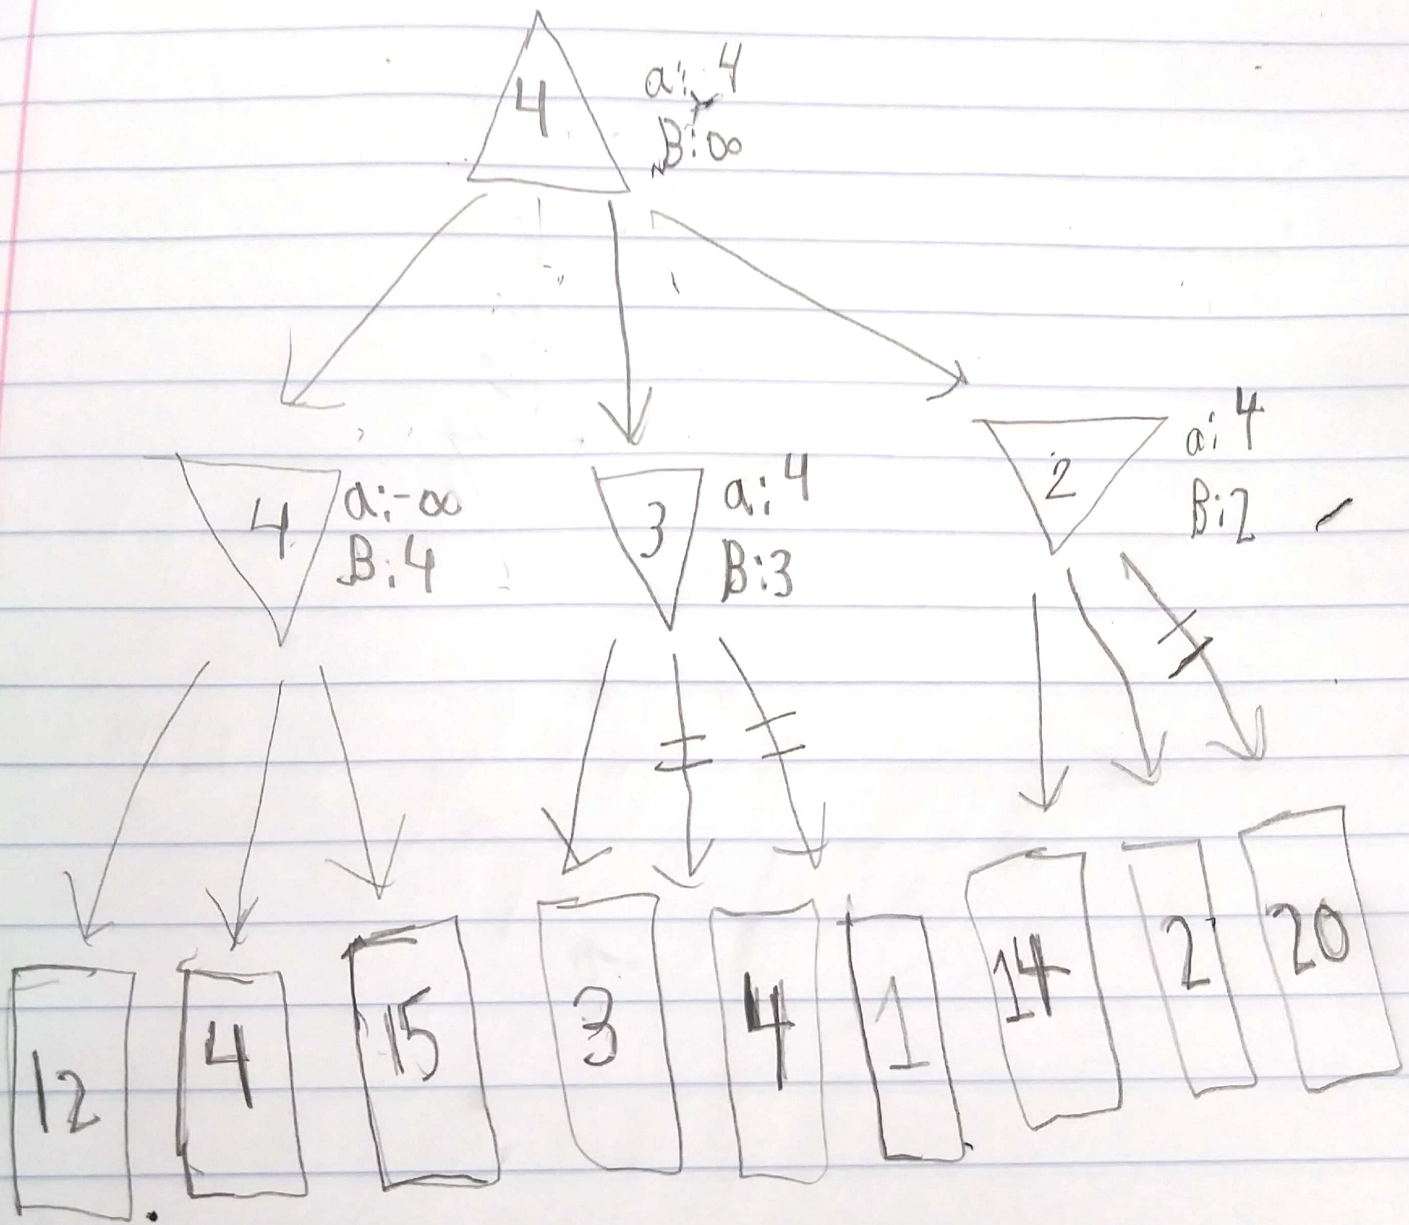 4
a: 4
B: ∞
4
a: -∞
B: 4
3
a: 4
B: 3
2
a: 4
B: 2
12
4
15
3
4
1
14
2
20